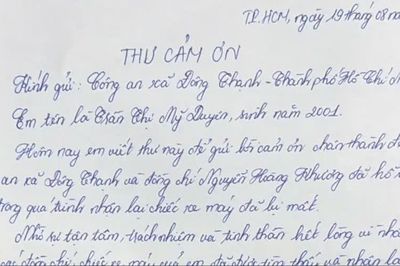 TP. HCM, ngày 19 tháng 08 nă
THƯ CẢM ƠN
Kính gửi: Công an xã Đông Thạnh - Thành phố Hồ Chí M
Em tên là Trần Thị Mỹ Duyên, sinh năm 2001.
Hôm nay em viết thư này để gửi lời cảm ơn chân thành đ
an xã Đông Thạnh và đồng chí Nguyễn Hoàng Phương đã hỗ
trong quá trình nhận lại chiếc xe máy đã bị mất.
Nhờ sự tận tâm, trách nhiệm và tinh thần hết lòng vì nhâ
các đồng chí, chiếc xe máy của em đã được tìm thấy và nhận lạ